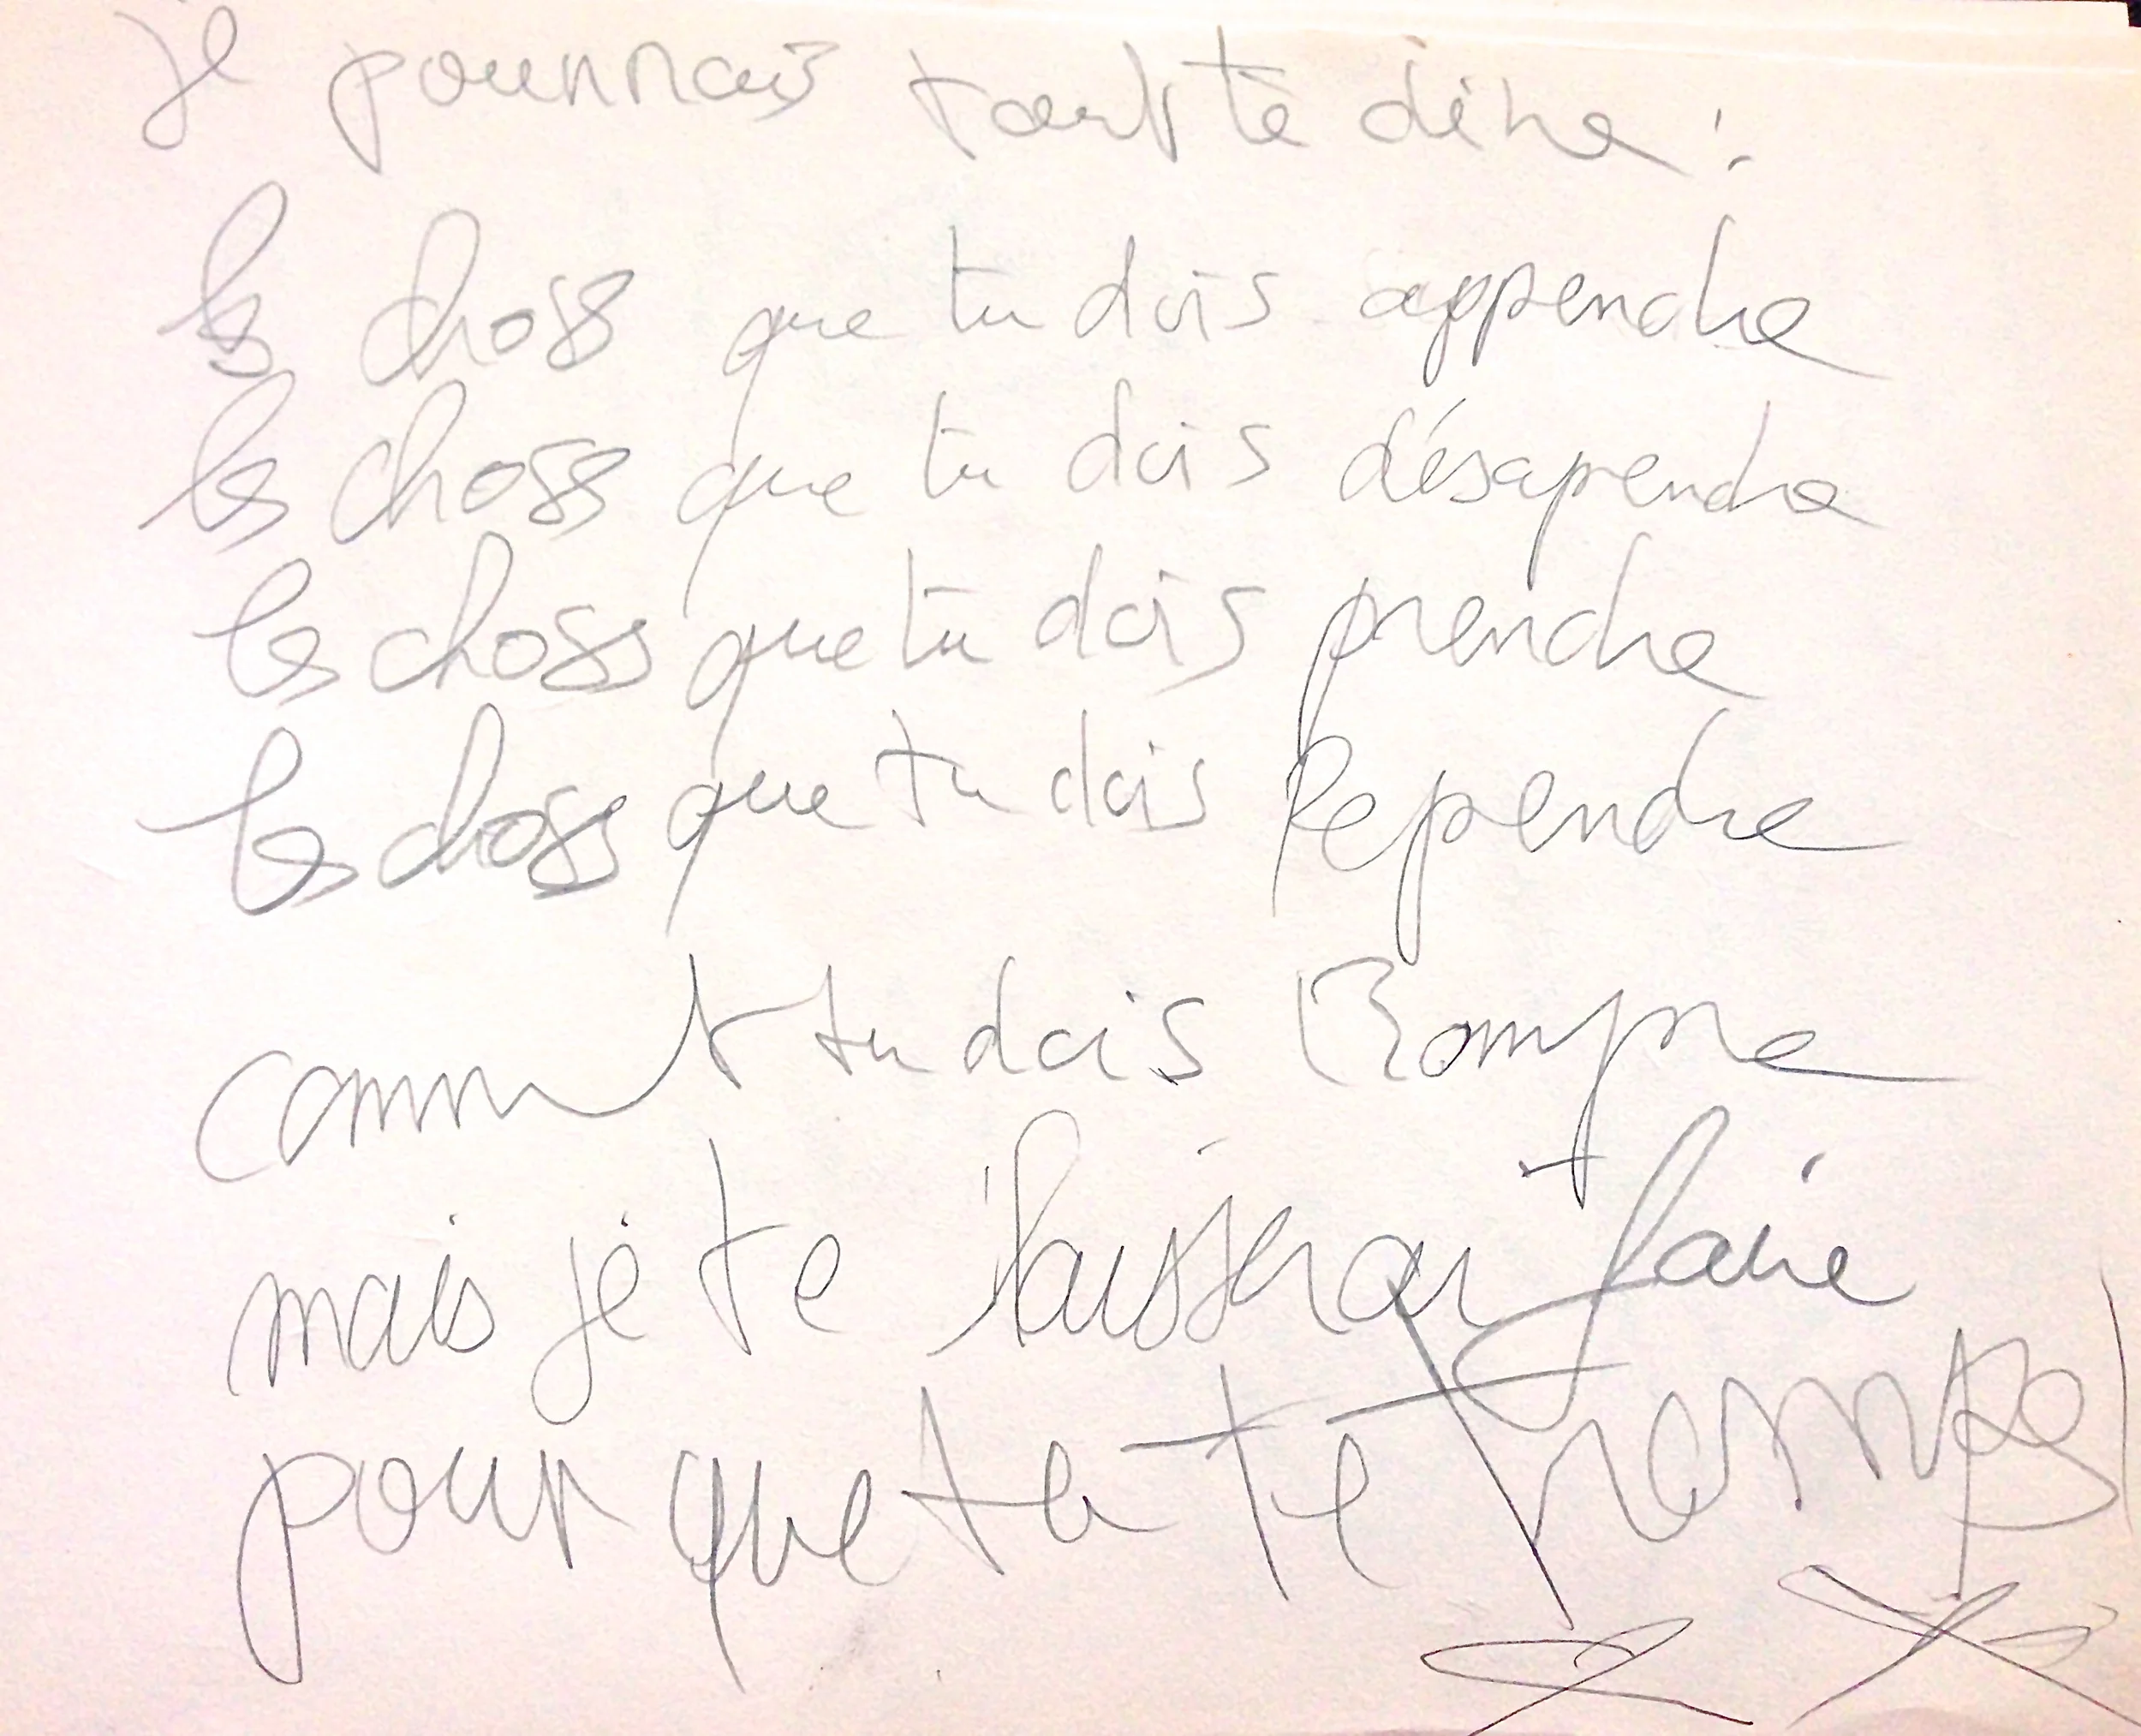 je pourrais tout te dire :
les choses que tu dois apprendre
les choses que tu dois désaprendre
les choses que tu dois prendre
les choses que tu dois Reprendre
comment tu dois Rompre
mais je te laisserai faire
pour que tu te trompes